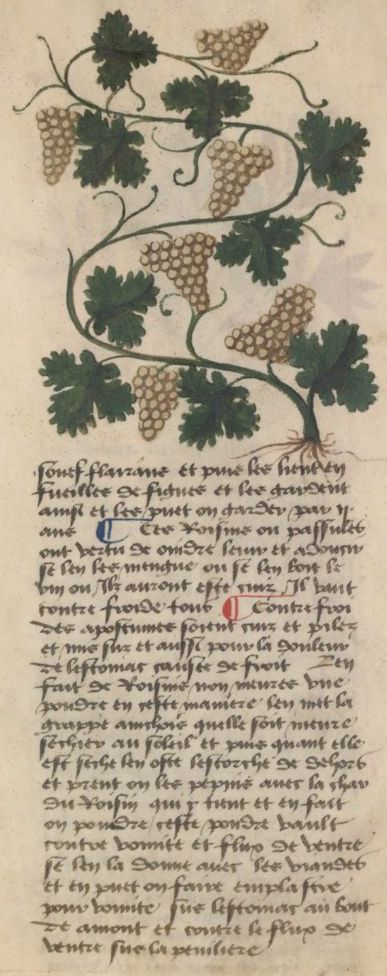 souef flairans et puis les lient en
fueilles de figues et les gardent
ainsi et les puet on garder par ij
ans ¶ Ces Roisins ou passules
ont vertu de oindre leuir et adoucir
se len les mengue ou se len boit le
vin ou Ilz auront este cuiz Il vault
contre froide toux ¶ Contre froi
des apostumes soient cuiz et pilez
et mis sus et aussi pour la douleur
de lestomac causee de froit Len
fait de Roisins non meures une
poudre en ceste maniere len met la
grappe aincois quelle soit meure
sechier au soleil et puis quant elle
est seche len oste lescorche de dehors
et prent on les pepins avec la char
du Roisin qui y tient et en fait
on poudre ceste poudre vault
contre vomite et flux de ventre
se len la donne avec les viandes
et en puet on faire emplastre
pour vomite sus lestomac au bout
de amont et contre le flux de
ventre sus la peniliere